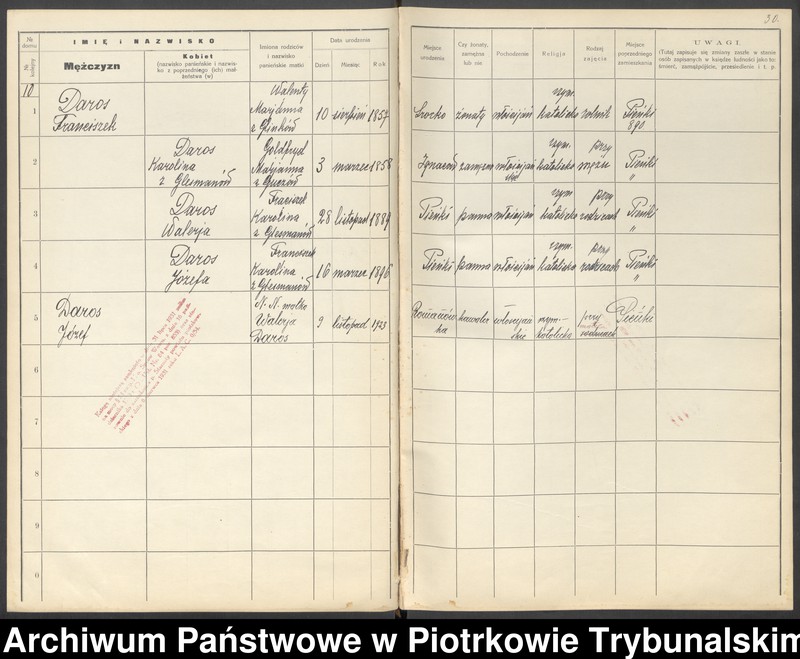 30.
№ domu
IMIĘ i NAZWISKO
Imiona rodziców i nazwisko panieńskie matki
Data urodzenia
№ kolejny
Mężczyzn
Kobiet
(nazwisko panieńskie i nazwisko z poprzedniego (ich) małżeństwa (w)
Dzień
Miesiąc
Rok
Miejsce urodzenia
Czy żonaty, zamężna lub nie
Pochodzenie
Religja
Rodzaj zajęcia
Miejsce poprzedniego zamieszkania
UWAGI.
(Tutaj zapisuje się zmiany zaszłe w stanie osób zapisanych w księdze ludności jako to: śmierć, zamążpójście, przesiedlenie i t. p.
10
1
Daros
Franciszek
Walenty
Marjanna
10 sierpień 1857
żonaty
włościjań
rzym.
katolicka
rolnik
Pieńki
890.
2
Daros
Karolina
z Glesmanów
Gotfryd
Marjanna
3 marzec 1858
Ignaców
zamężna
włościjańskie
rzym.
katolicka
przy
mężu
Pieńki
"
3
Daros
Walerja
Fraciszek
Karolina
z Glesmanów
28 listopad 1889
Pieńki
panna
włościjań
rzym.
katolicka
przy
rodzicach
Pieńki
"
4
Daros
Józefa
Franciszek
Karolina
z Glesmanów
16 marzec 1896
Pieńki
panna
włościjań
rzym.
katolicka
przy
rodzicach
Pieńki
"
5
Daros
Józef
N. N. matka
Walerja
Daros
9 listopad 1923
kawaler
włościjańskie
rzym-
katolicka
przy
rodzicach
Pieńki
6
7
8
9
0
Archiwum Państwowe w Piotrkowie Trybunalskim